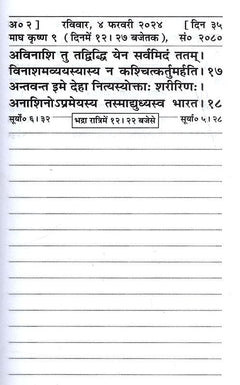 अ० २ ] रविवार, ४ फरवरी २०२४ [ दिन ३५
माघ कृष्ण ९ ( दिनमें १२।२७ बजेतक ), सं० २०८०
अविनाशि तु तद्विद्धि येन सर्वमिदं ततम्।
विनाशमव्ययस्यास्य न कश्चित्कर्तुमर्हति। १७
अन्तवन्त इमे देहा नित्यस्योक्ताः शरीरिणः।
अनाशिनोऽप्रमेयस्य तस्माद्युध्यस्व भारत। १८
सूर्यो० ६।३२ भद्रा रात्रिमें १२।२२ बजेसे सूर्या० ५।२८